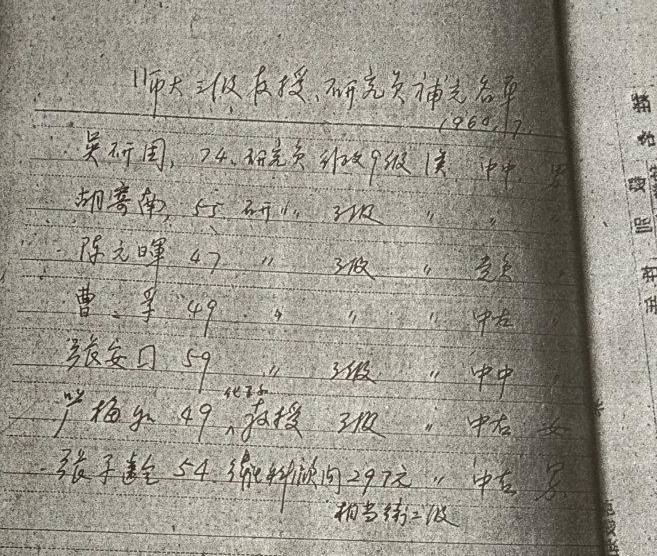 师大三级教授、研究员补充名单
1960.7.
吴研因, 74, 研究员 行政9级 汉 中中 男
胡 南, 55 研〃 3级 〃 〃
陈元晖 47 〃 3级 〃 党员 〃
曹孚 49 〃 〃 〃 中左 〃
张安国 59 〃 3级 〃 中中 〃
严梅和 49 教授 3级 〃 中右 女
张子 54 顾问 297元 〃 中左 男
相当 二级